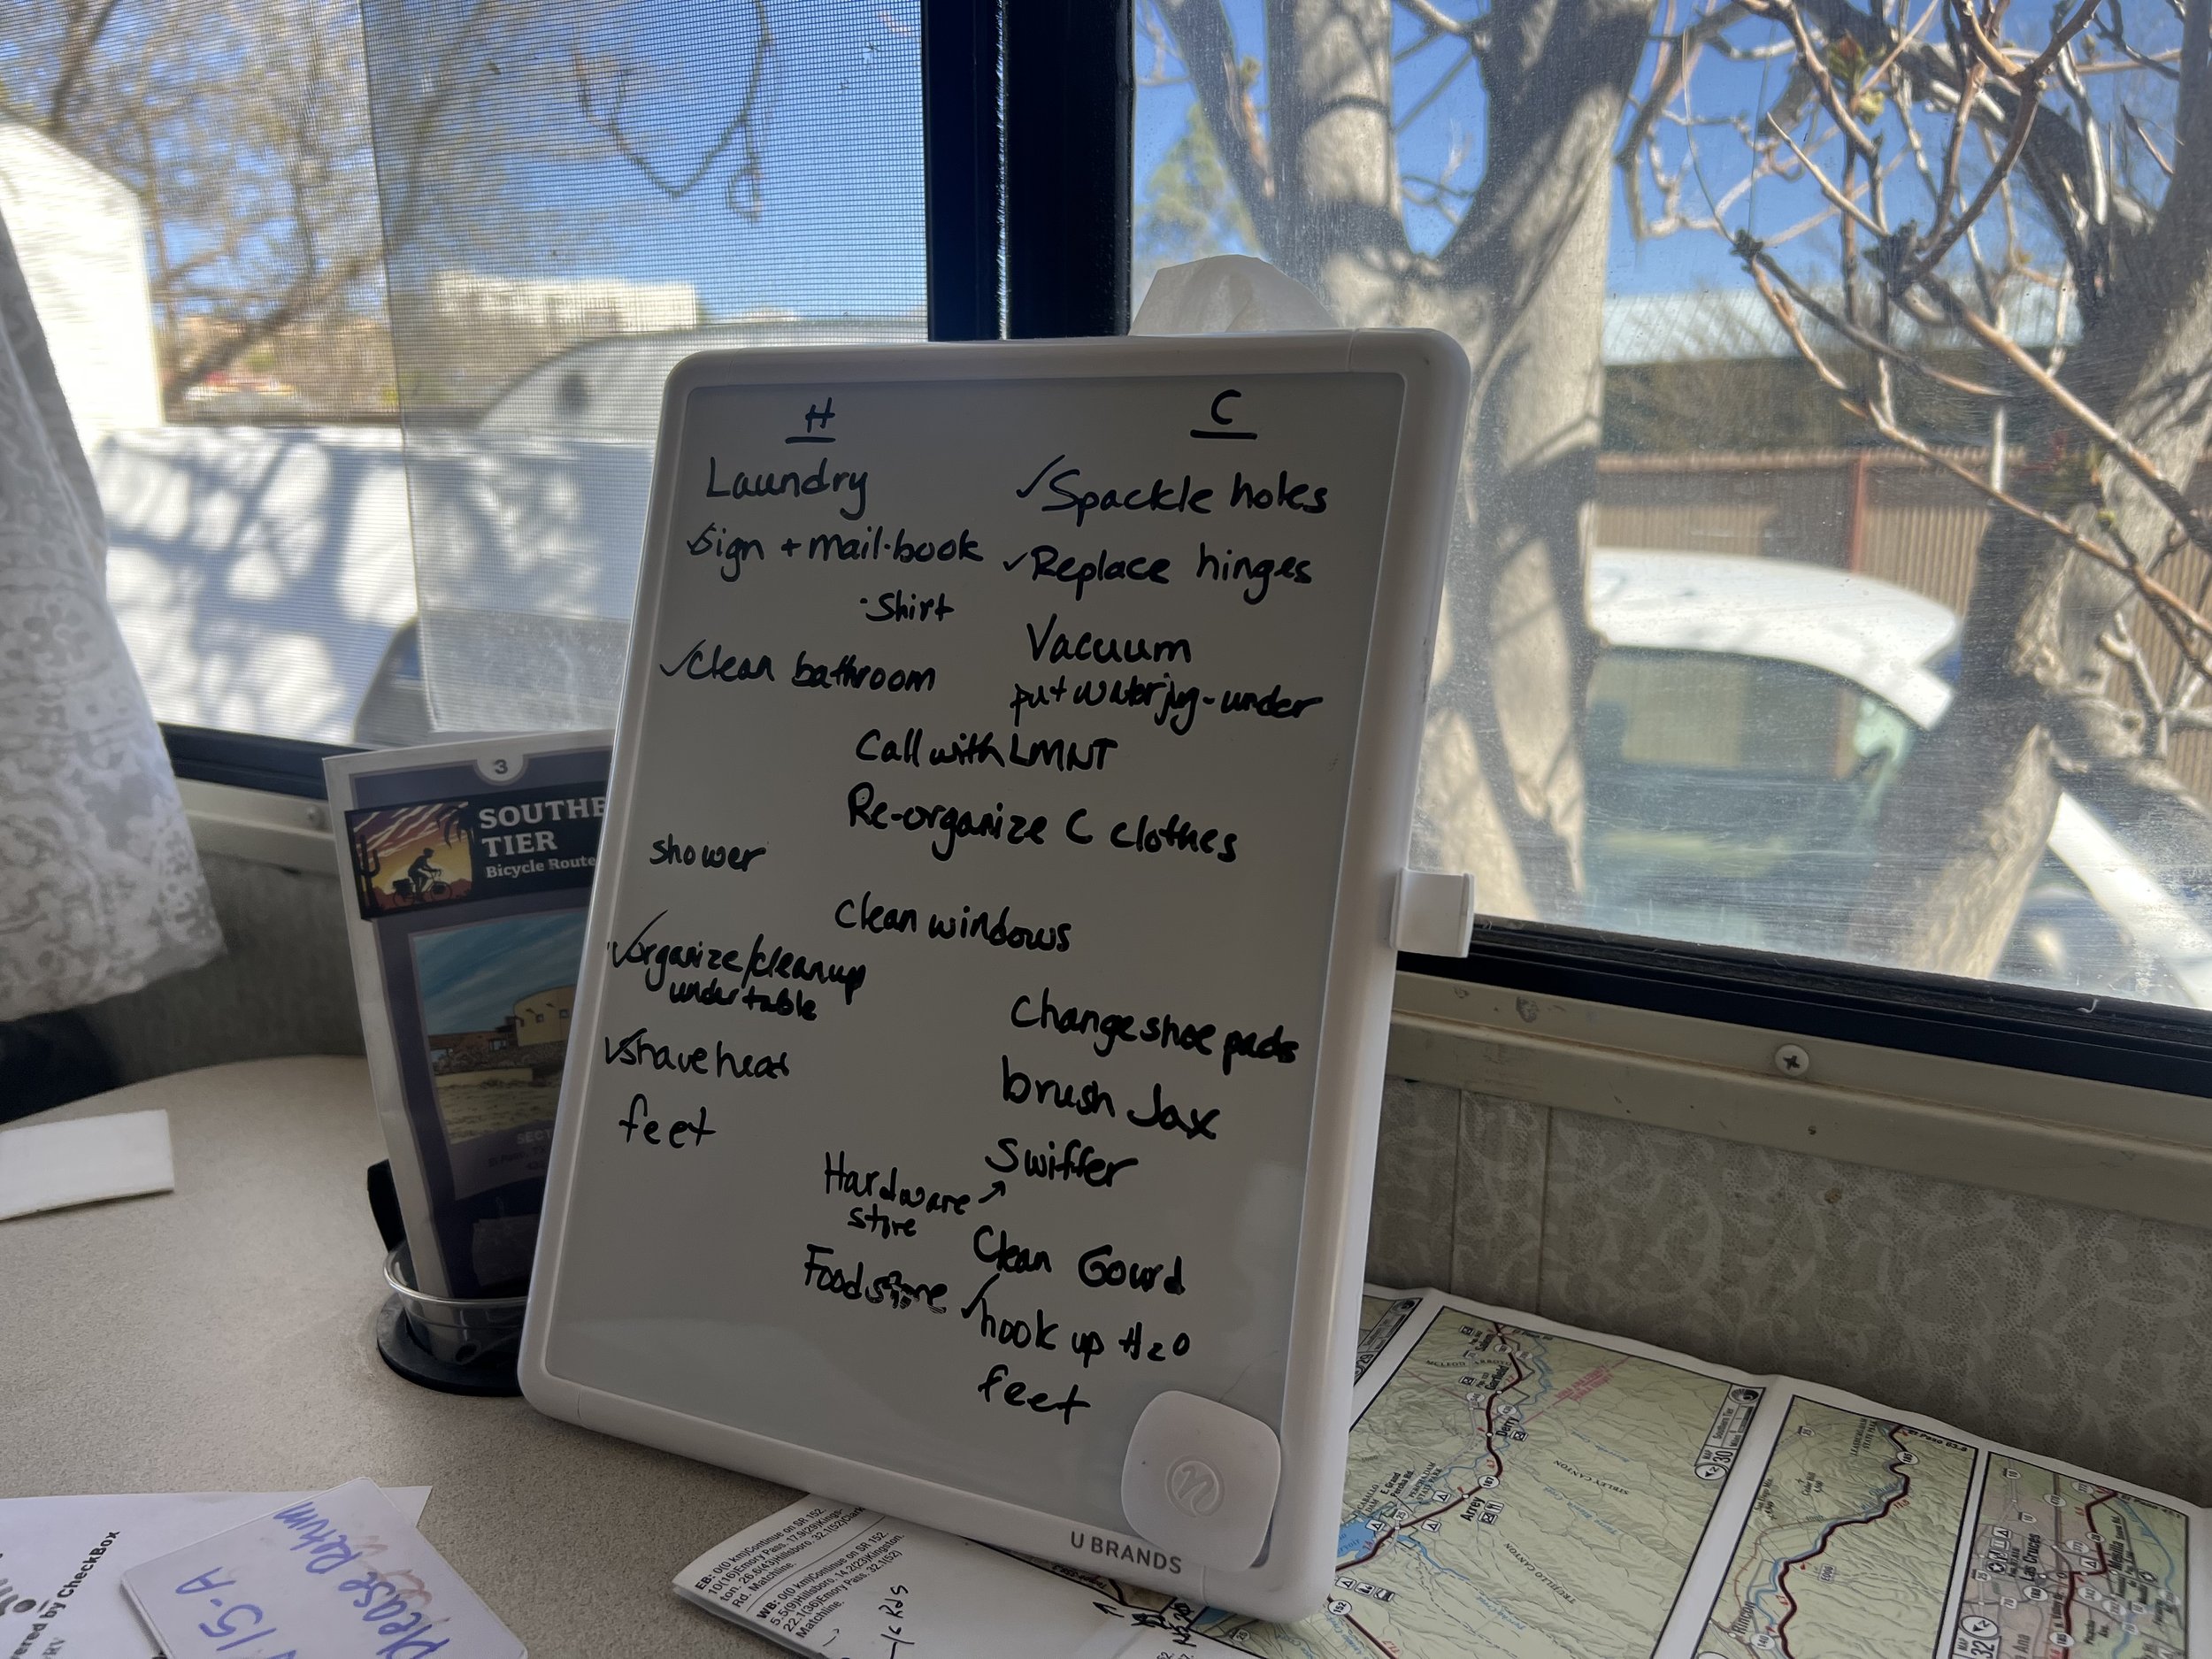 H
Laundry
✓Sign + mail·book
·Shirt
✓Clean bathroom
C
✓Spackle holes
✓Replace hinges
Vacuum
put water jug-under
Call with LMNT
Re-organize C clothes
shower
Clean windows
✓organize/cleanup
under table
✓shave head
feet
Change shoe pads
brush Jax
Swiffer
Hardware ↗
store
Clean Gourd
Food store
✓hook up H2O
feet
U BRANDS
3
SOUTHE
TIER
Bicycle Route
Please Return
15-A
ered by CheckBox
EB: 0(0 km)Continue on SR 152.
10(16)Emory Pass.
Rd. Matchline.
WB: 0(0 km)Continue on SR 152.
5.5(9)Hillsboro. 14.2(23)Kingston.
22.1(36)Emory Pass. 32.1(52)
Matchline.
Garfield
Derry
Arrey
SIBLEY CANYON
TRUJILLO CANYON
MAP 30
Rincon
Las Cruces
MAP 32
152
187
185